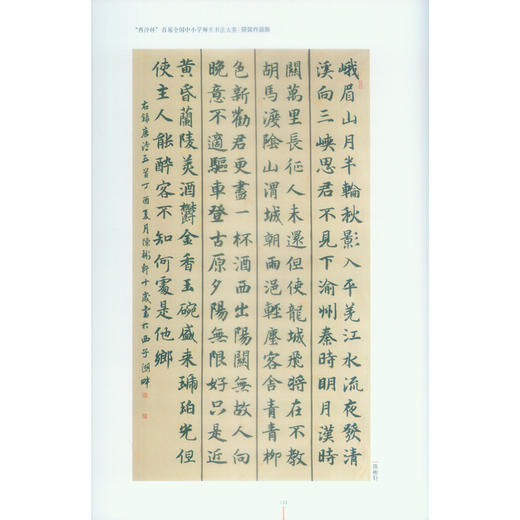 “西泠杯”首届全国中小学师生书法大赛|获奖作品集
峨眉山月半輪秋影入平羌江水流夜發清
溪向三峽思君不見下渝州秦時明月漢時
關萬里長征人未還但使龍城飛將在不教
胡馬渡陰山渭城朝雨浥輕塵客舍青青柳
色新勸君更盡一杯酒西出陽關無故人向
晚意不適驅車登古原夕陽無限好只是近
黄昏蘭陵美酒鬱金香玉碗盛来琥珀光但
使主人能醉客不知何處是他鄉
右錄唐诗五首丁酉夏月陳軒十歲書於西子湖畔